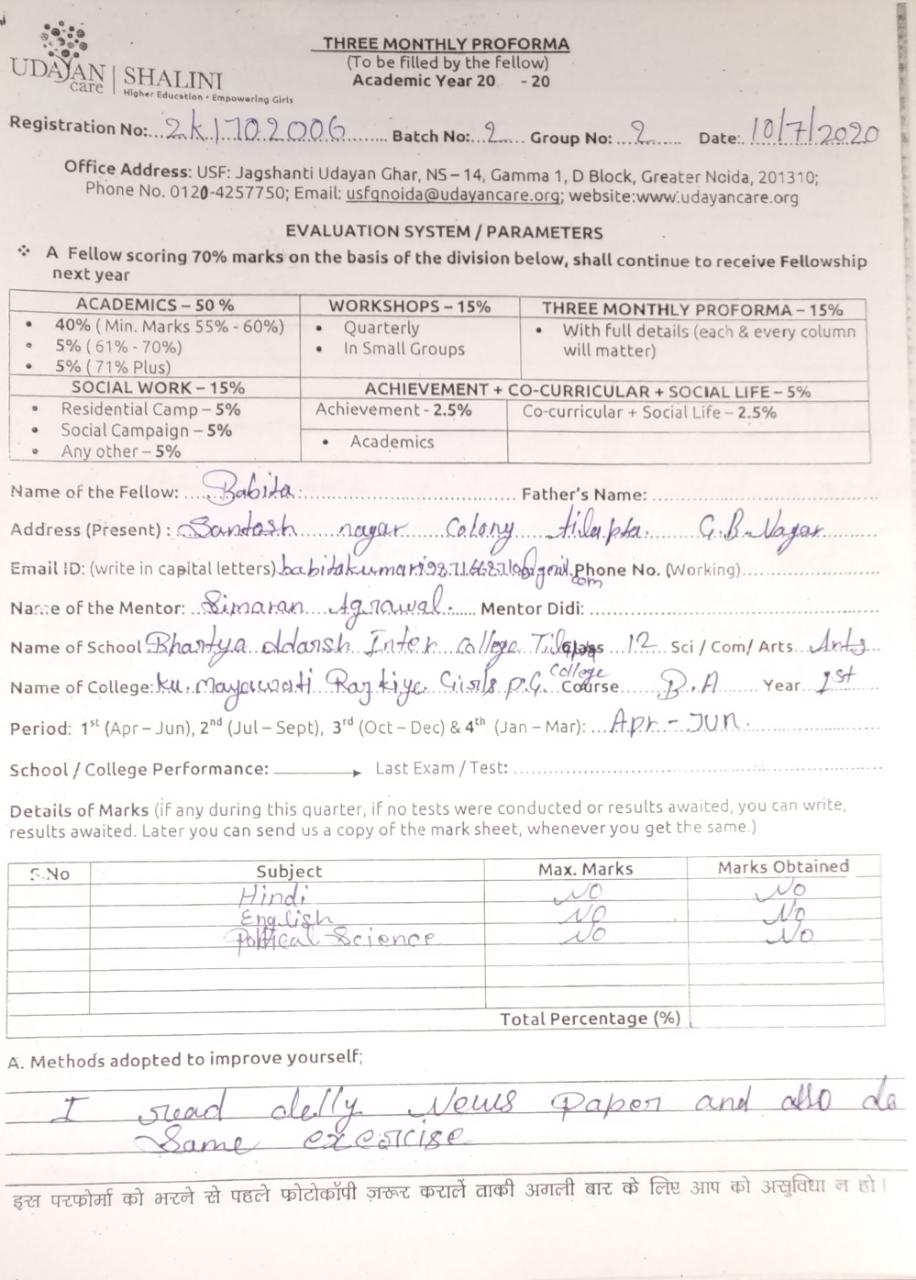 UDAYAN care | SHALINI
Higher Education • Empowering Girls
THREE MONTHLY PROFORMA
(To be filled by the fellow)
Academic Year 20 - 20
Registration No:...2k1702006........ Batch No:..2..... Group No: ..2........ Date:. 10/7/2020
Office Address: USF: Jagshanti Udayan Ghar, NS – 14, Gamma 1, D Block, Greater Noida, 201310;
Phone No. 0120-4257750; Email: usfgnoida@udayancare.org; website:www.udayancare.org
EVALUATION SYSTEM / PARAMETERS
❖ A Fellow scoring 70% marks on the basis of the division below, shall continue to receive Fellowship
next year
ACADEMICS – 50 % WORKSHOPS – 15% THREE MONTHLY PROFORMA – 15%
• 40% ( Min. Marks 55% - 60%) • Quarterly • With full details (each & every column
• 5% ( 61% - 70%) • In Small Groups will matter)
• 5% ( 71% Plus)
SOCIAL WORK – 15% ACHIEVEMENT + CO-CURRICULAR + SOCIAL LIFE – 5%
• Residential Camp – 5% Achievement - 2.5% Co-curricular + Social Life – 2.5%
• Social Campaign – 5% • Academics
• Any other – 5%
Name of the Fellow: .....Babita.............. Father's Name: ..............
Address (Present) : Santosh nagar Colony tilapta. G.B. Nagar
Email ID: (write in capital letters) Phone No. (Working)..............
Name of the Mentor: Simaran Agrawal...... Mentor Didi: ..............
Name of School Bhartya Adarsh Inter College Class 12 Sci / Com/ Arts Arts
Name of College: Ku. Mayawati Rajkiye Girls P.G. College Course B.A Year 1st
Period: 1st (Apr – Jun), 2nd (Jul – Sept), 3rd (Oct – Dec) & 4th (Jan – Mar): ...Apr - Jun.
School / College Performance: Last Exam / Test: ..............
Details of Marks (if any during this quarter, if no tests were conducted or results awaited, you can write,
results awaited. Later you can send us a copy of the mark sheet, whenever you get the same.)
S.No Subject Max. Marks Marks Obtained
Hindi NO No
English NO No
Political Science No No
Total Percentage (%)
A. Methods adopted to improve yourself;
I read delly News Paper and also do
Same exercise
इस परफोर्मा को भरने से पहले फोटोकॉपी ज़रूर करालें ताकी अगली बार के लिए आप को असुविधा न हो।